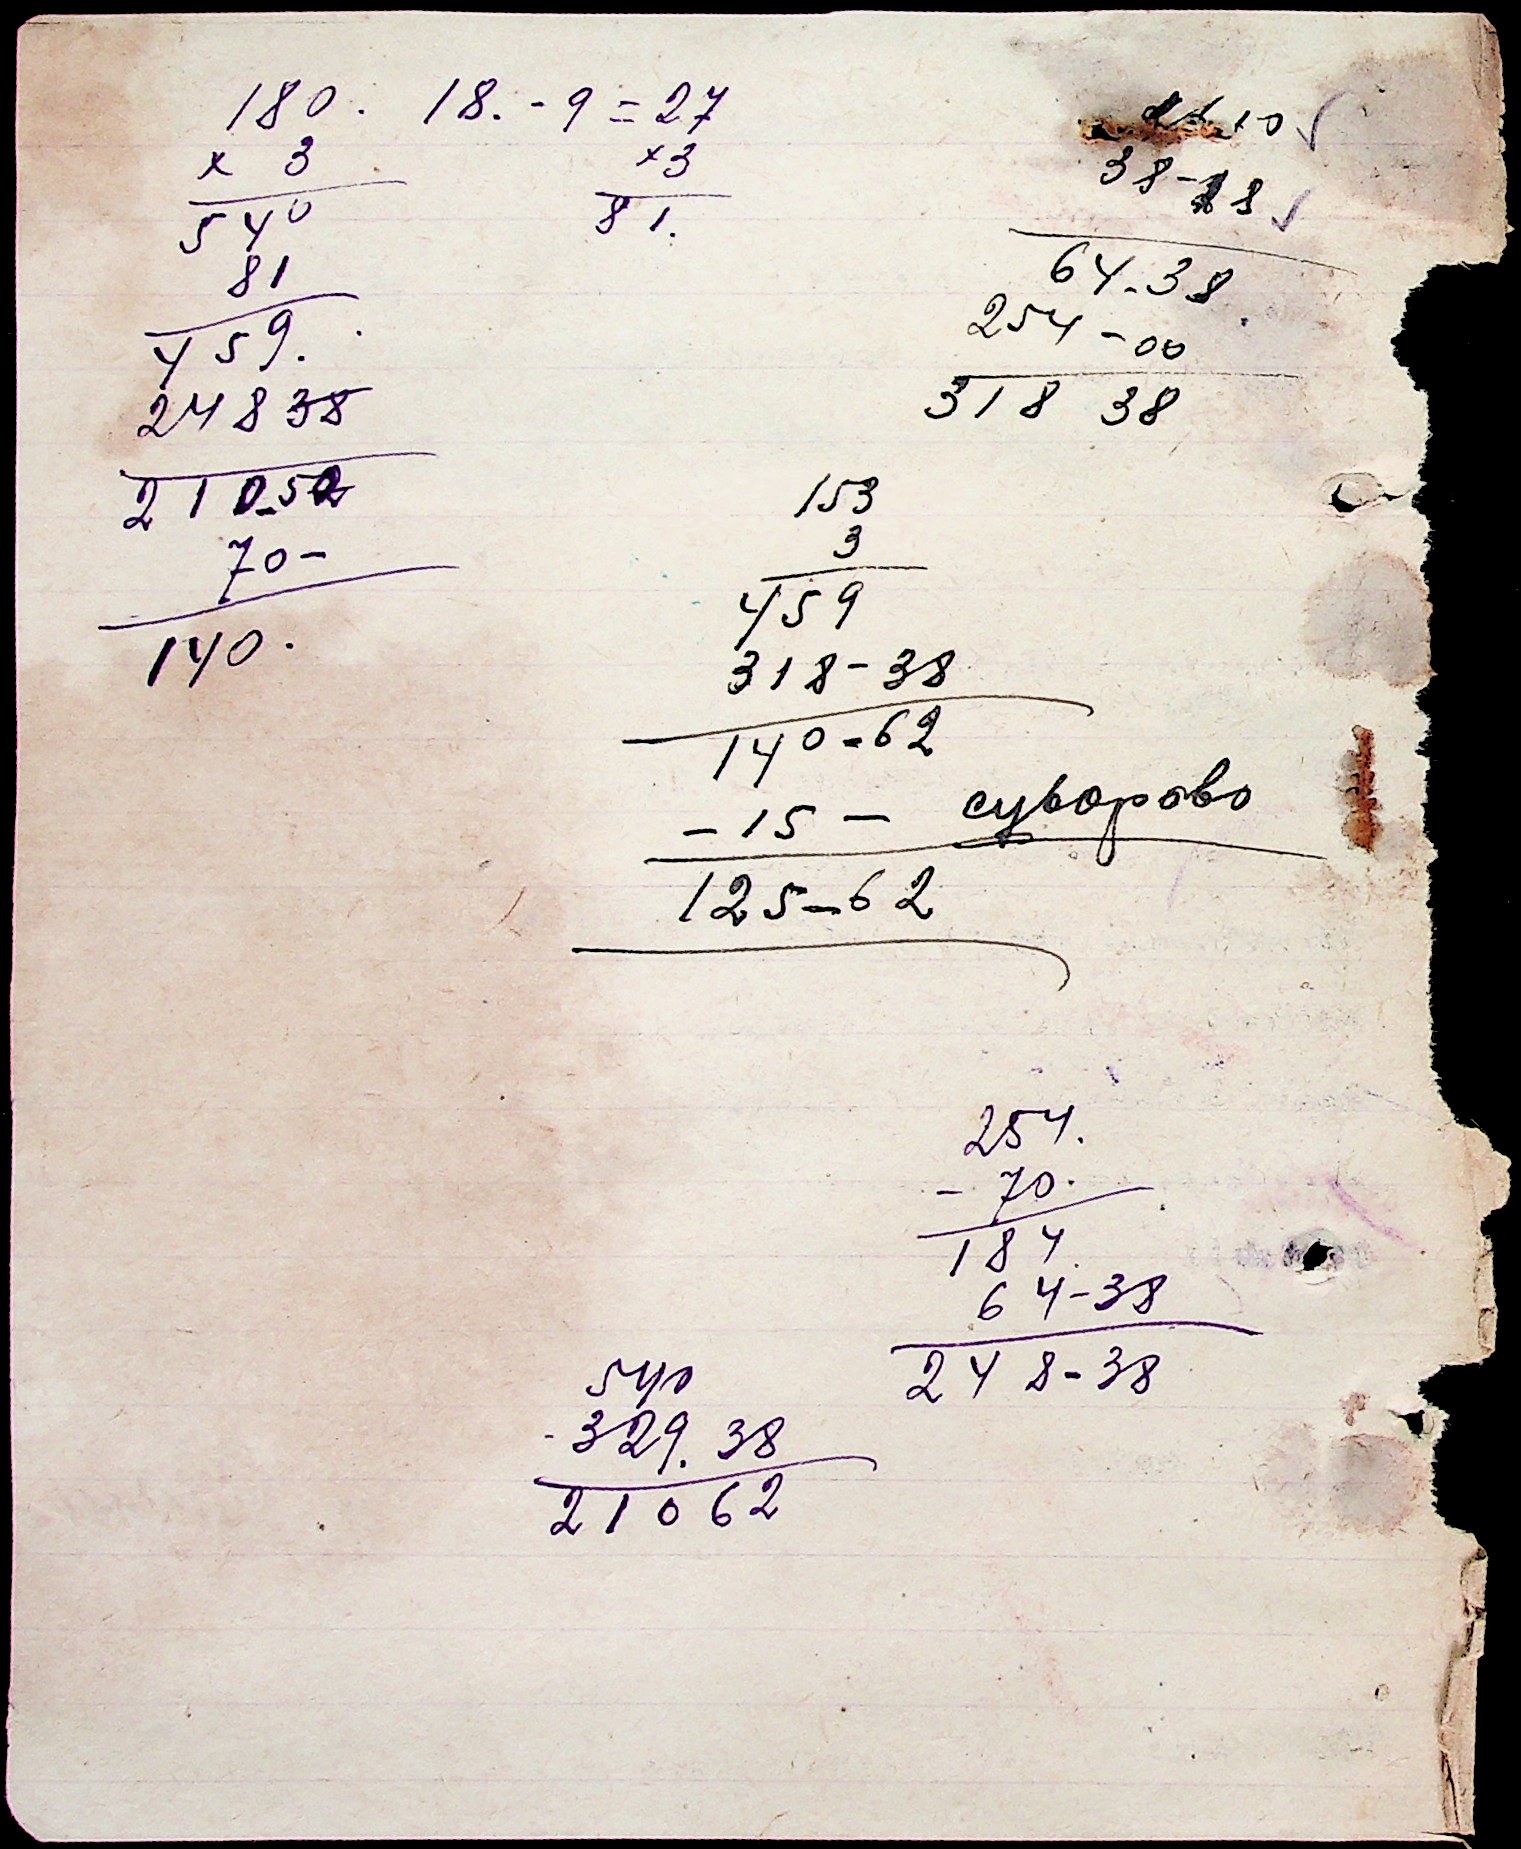 180. 18. - 9 = 27
× 3
540
81
459.
248 38
210.52
70 -
140.
× 3
81.
10
38 - 28
64 - 38
254 - 00
318 38
153
3
459
318 - 38
140 - 62
- 15 - суворово
125 - 62
254.
- 70.
184
64 - 38
248 - 38
540
- 329. 38
210 62